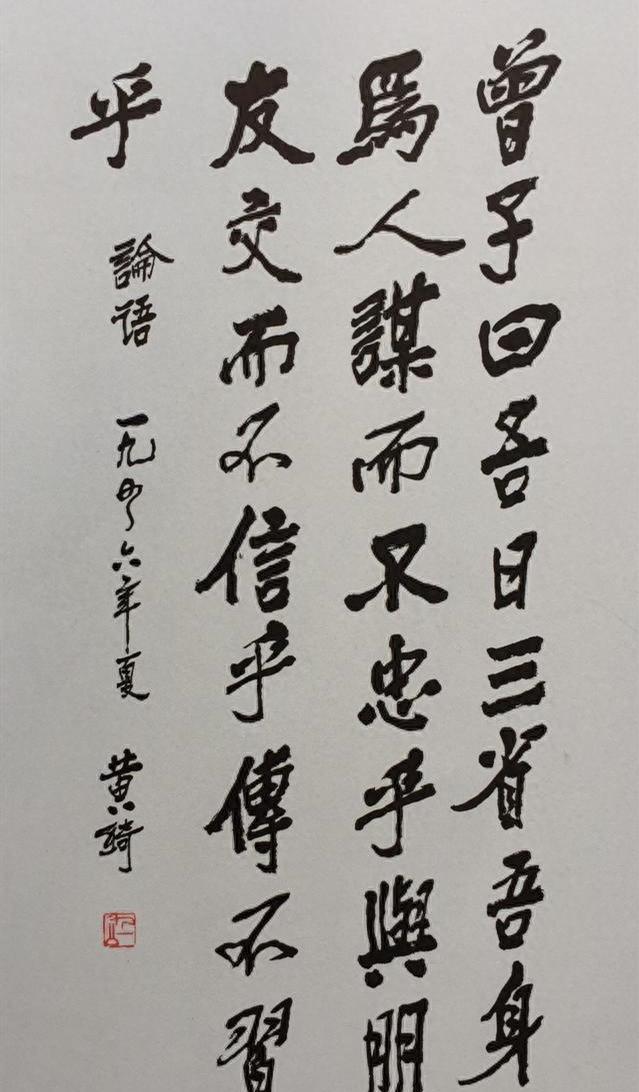 曾子曰吾日三省吾身
爲人謀而不忠乎與朋
友交而不信乎傳不習
乎 論語 一九六年夏 黄綺